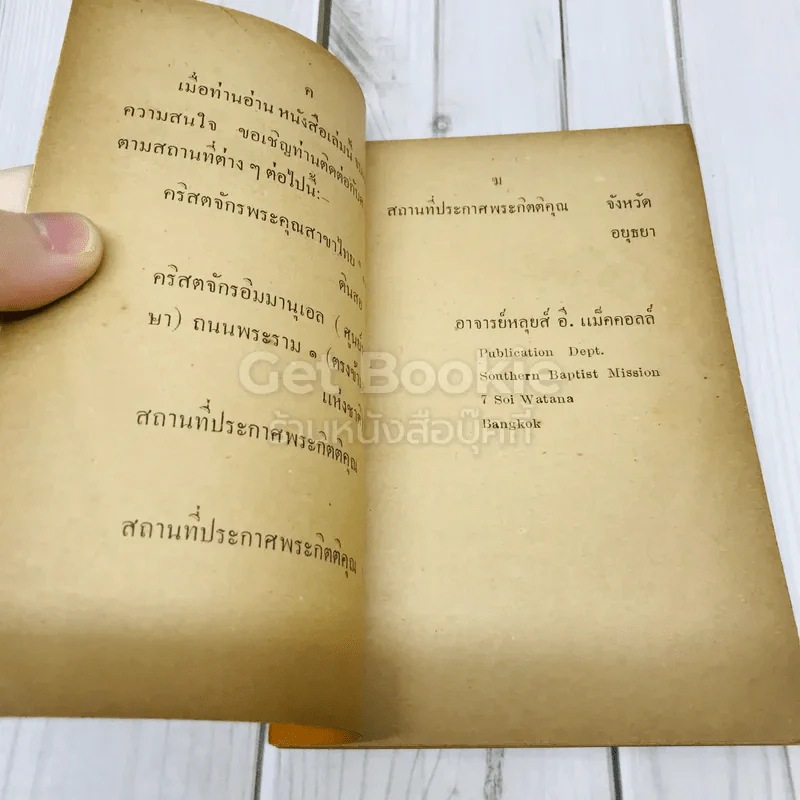 ค
เมื่อท่านอ่าน หนังสือเล่มนี้
ความสนใจ ขอเชิญท่านติดต่อกับ
ตามสถานที่ต่าง ๆ ต่อไปนี้:–
คริสตจักรพระคุณสาขาไทย
ดินสอ
คริสตจักรอิมมานูเอล (ศูนย์
ษา) ถนนพระราม ๑ (ตรงข้าม
แห่งชาติ
สถานที่ประกาศพระกิตติคุณ
สถานที่ประกาศพระกิตติคุณ
ฆ
สถานที่ประกาศพระกิตติคุณ จังหวัด
อยุธยา
อาจารย์หลุยส์ อี. แม็คคอลล์
Publication Dept.
Southern Baptist Mission
7 Soi Watana
Bangkok
Get Bookie
ร้านหนังสือบุ๊คกี้